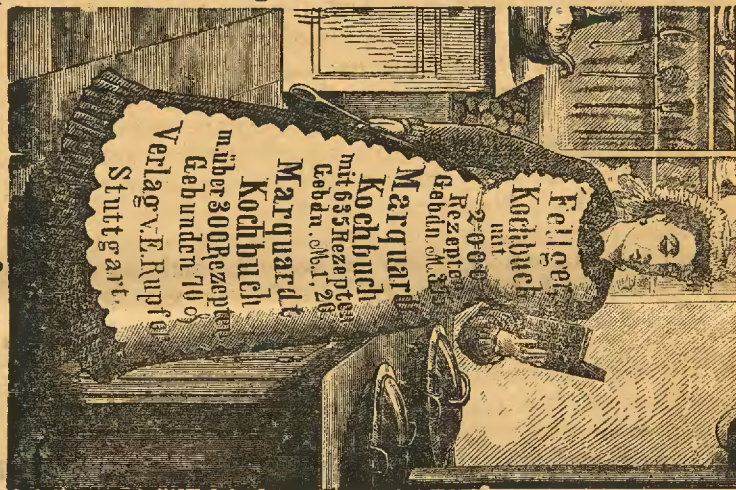 Fellger
Kochbuch
mit
2000
Rezepte
Gebdn. M.
Marquardt
Kochbuch
mit 655 Rezepte
Gebdn. M. 1,20
Marquardt
Kochbuch
m. über 300 Rezepten
Gebunden 70 ₰
Verlag v. E. Rupfer
Stuttgart.